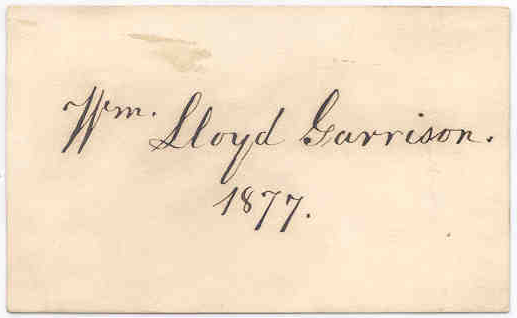 Wm. Lloyd Garrison.
1877.